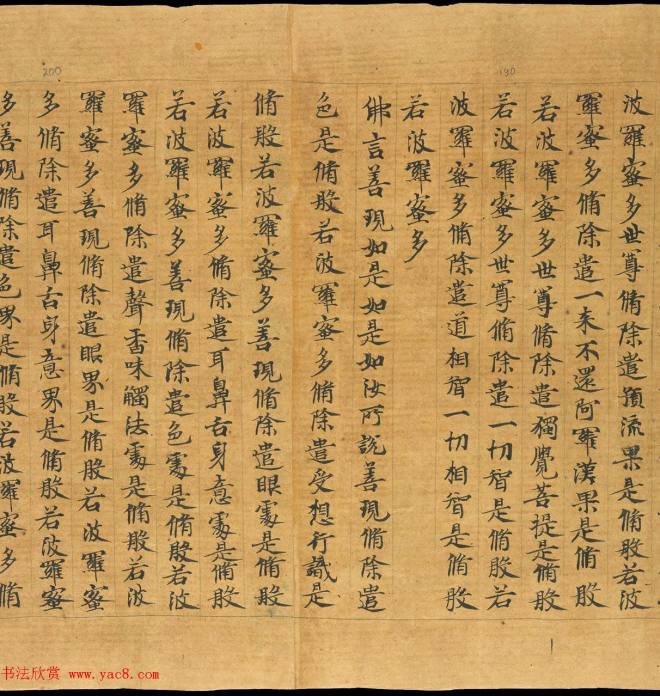 波羅蜜多世尊脩除遣預流果是脩般若波
羅蜜多脩除遣一来不還阿羅漢果是脩
若波羅蜜多世尊脩除遣獨覺菩提是脩般
若波羅蜜多世尊脩除遣一切智是脩般若
波羅蜜多脩除遣道相智一切相智是脩般
若波羅蜜多
佛言善現如是如是如汝所說善現脩除遣
色是脩般若波羅蜜多脩除遣受想行識是
脩般若波羅蜜多善現脩除遣眼處是脩般
若波羅蜜多脩除遣耳鼻舌身意處是脩般
若波羅蜜多善現脩除遣色處是脩般若波
羅蜜多脩除遣聲香味觸法處是脩般若波
羅蜜多善現脩除遣眼界是脩般若波羅蜜
多脩除遣耳鼻舌身意界是脩般若波羅蜜
多善現脩除遣色界是脩般若波羅蜜多脩
190
200
书法欣赏 www.yac8.com